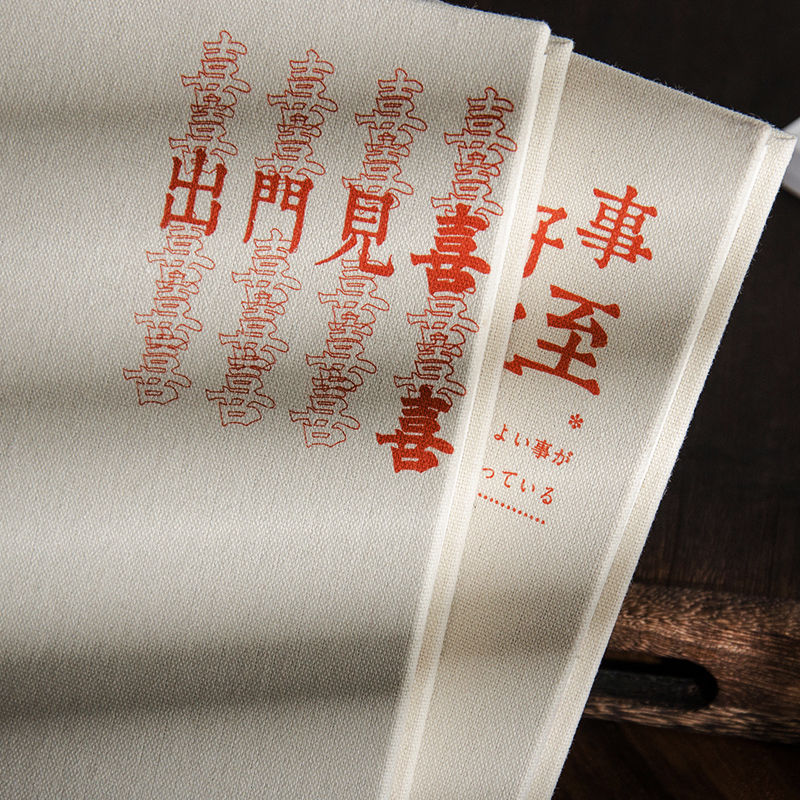 出門見喜
喜
好事
至
よい事が
っている